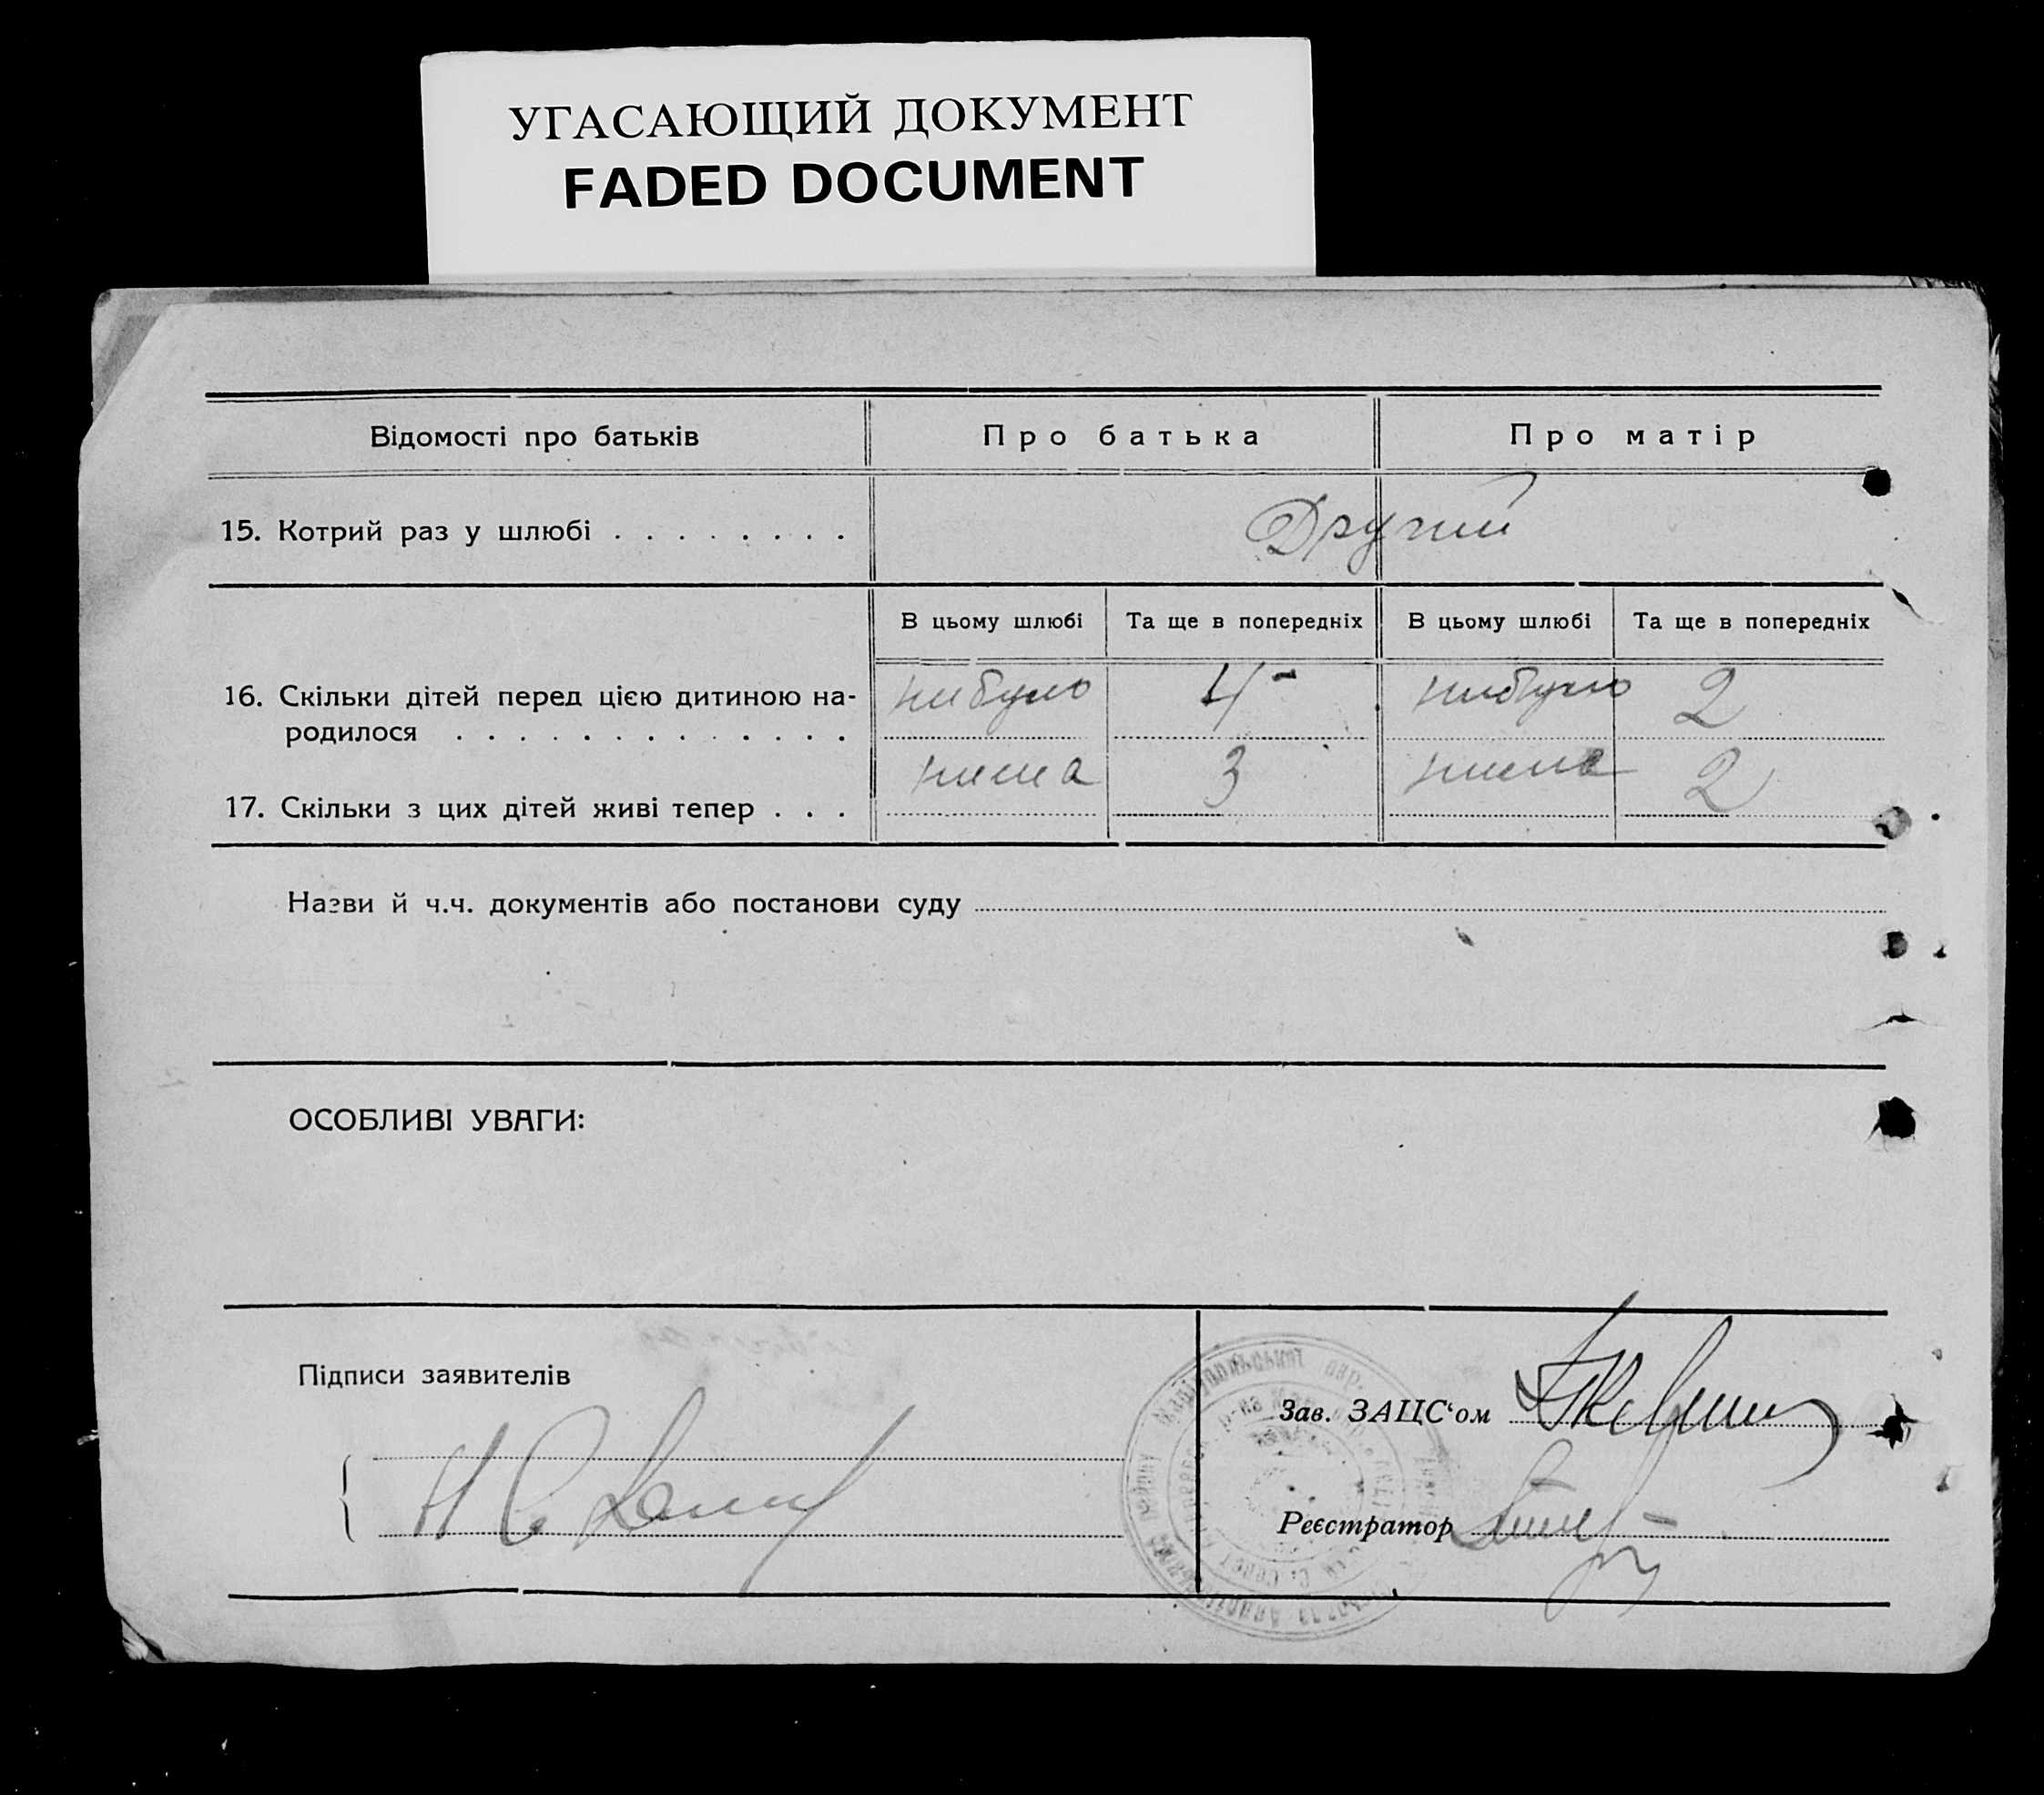 УГАСАЮЩИЙ ДОКУМЕНТ
FADED DOCUMENT
Відомості про батьків
Про батька
Про матір
15. Котрий раз у шлюбі . . . . . . . .
Другий
В цьому шлюбі
Та ще в попередніх
В цьому шлюбі
Та ще в попередніх
16. Скільки дітей перед цією дитиною на-
родилося . . . . . . . . . . . . .
небуло
4 -
небуло
2
17. Скільки з цих дітей живі тепер . . .
нема
3
нема
2
Назви й ч.ч. документів або постанови суду
ОСОБЛИВІ УВАГИ:
Підписи заявителів
Зав. ЗАЦС‘ом
Реєстратор